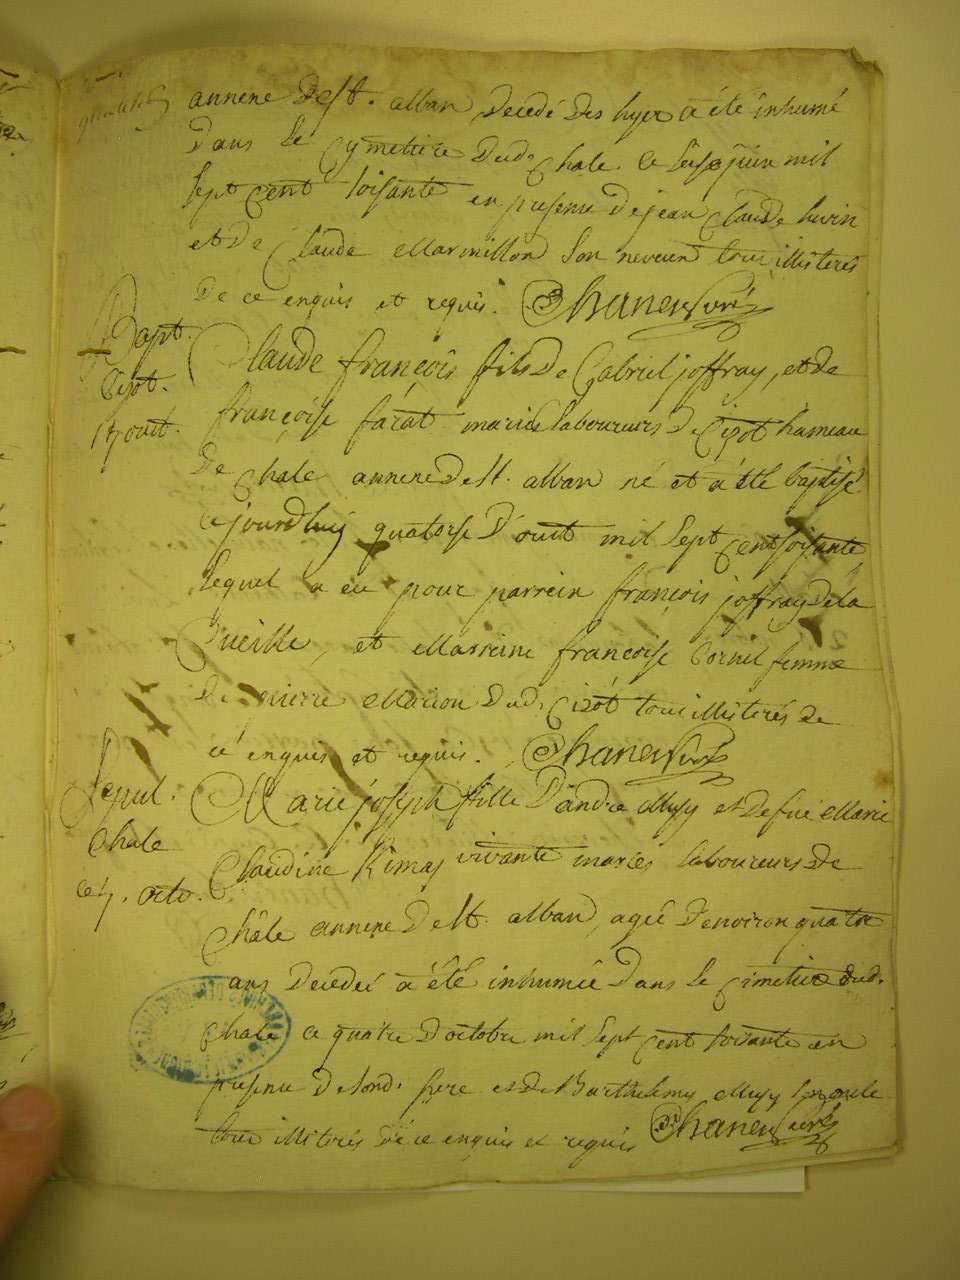 annexe de st. alban, decedé des hyer a été inhumé
dans le cymetiere dud. Chale ce seise juin mil
sept cent soisante en presence de jean Claude
et de Claude Marmillon son neveux tous illiteres
de ce enquis et requis. Chanen Curé
Bapt.
Cizot.
Claude françois fils de Gabriel joffray, et de
françoise farat mariés laboureurs de Cizot hameau
de Chale annexe de st. alban né et a été baptisé
ce jourdhuy quatorse d'out mil sept cent soisante
lequel a eu pour parrein françois joffray de la
Cueille, et Marreine françoise Cornil femme
de pierre Marion dud. Cizot tous illiterés de
ce enquis et requis. Chanen Curé
Sepul.
Chale
ce 4. octo.
Marie joseph fille d'andre Musy et de fue Marie
Claudine vivante mariés laboureurs de
Châle annexe de st. alban, agée d'environ quatre
ans decedeé a été inhumée dans le Cimetiere dud.
Chale ce quatre d'octobre mil sept cent soisante en
presence de sond. pere et de Barthelemy Musy son oncle
tous illiterés de ce enquis et requis Chanen Curé